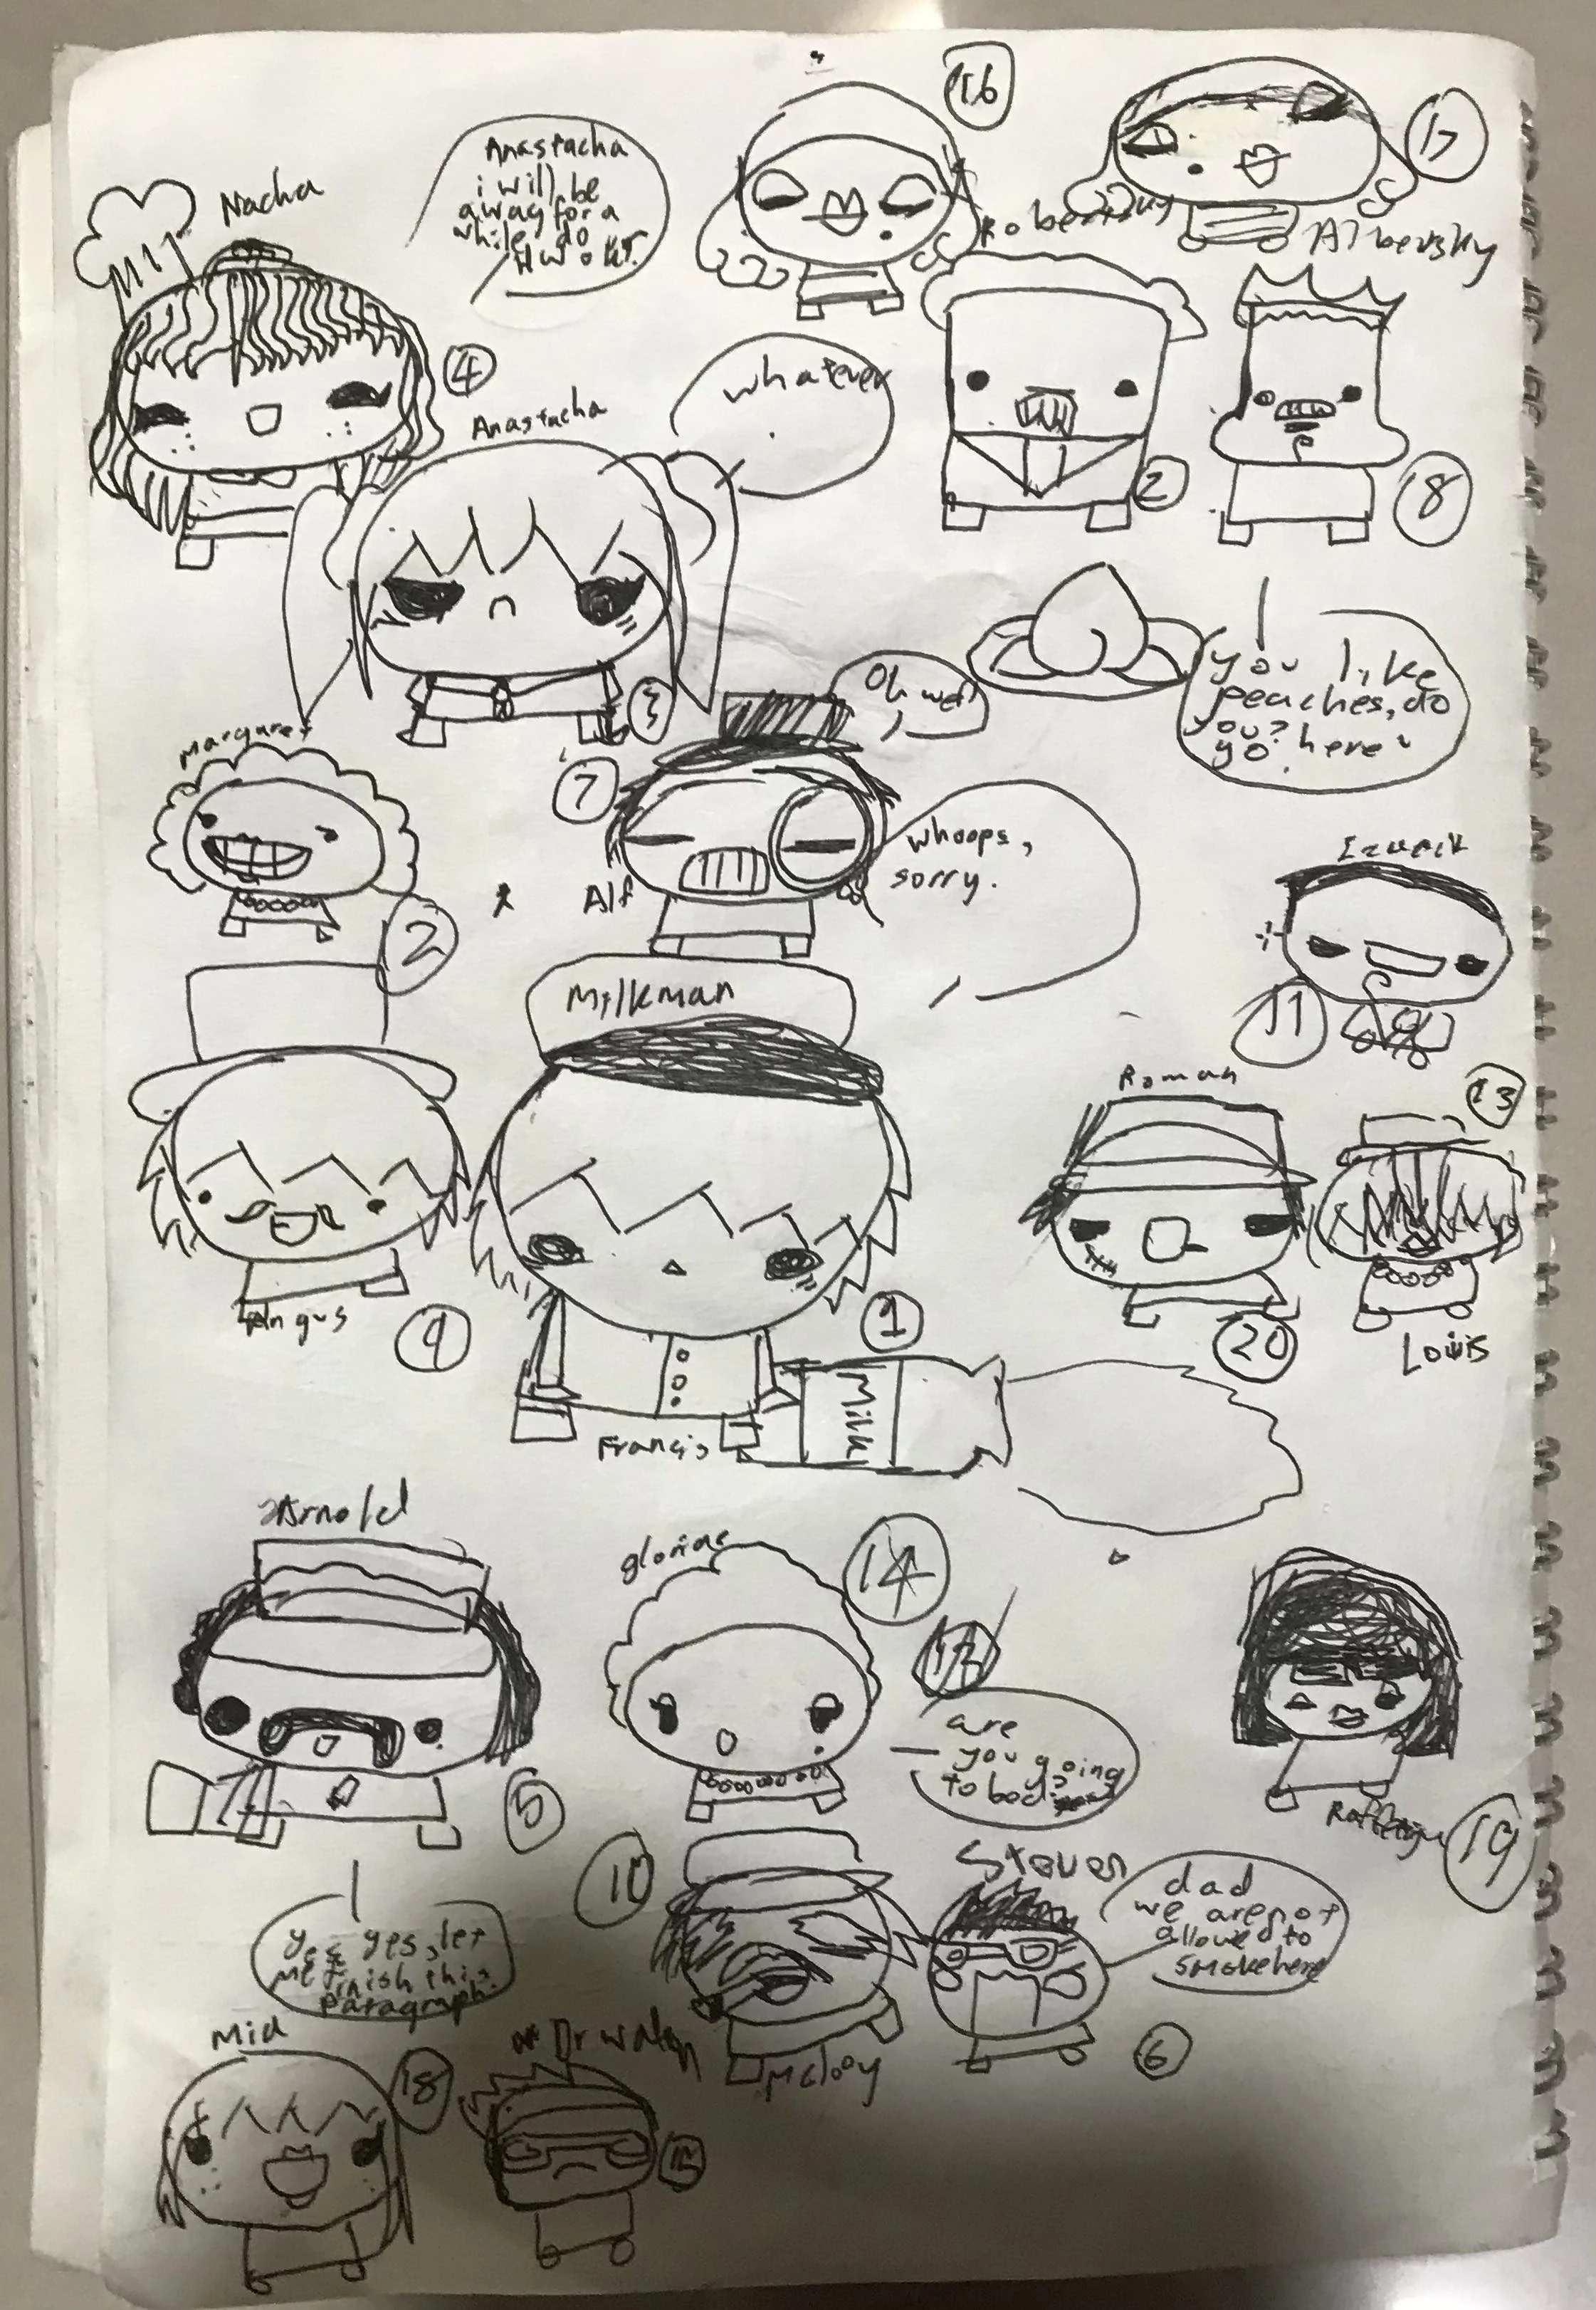 16
Anastacha
i will be
away for a
while, do
HW ok?
Nacha
17
Robertsky
Albertsky
4
Anastacha
whatever
2
18
3
Oh well
you like
peaches, do
you? here
yo.
Margaret
7
Alf
whoops,
sorry.
2
Izaack
11
Milkman
Roman
13
Angus
9
1
20
Louis
Milk
Francis
Arnold
gloriae
14
12
are
you going
to bed?
5
19
10
Steven
dad
we are not
allowed to
smoke here
yes yes, let
me finish this
paragraph.
Mclooy
6
Mia
18
Dr
15